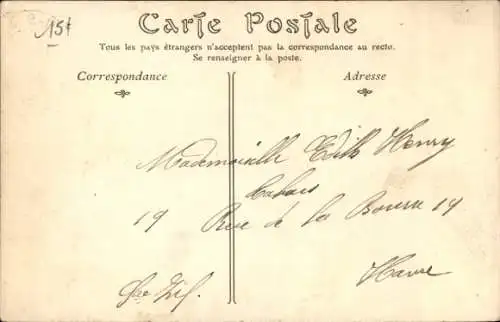 15f
Carte Postale
Tous les pays étrangers n'acceptent pas la correspondance au recto.
Se renseigner à la poste.
Correspondance
Adresse
Mademoiselle Edith Henry
19 Rue de la Bourse 19
Havre